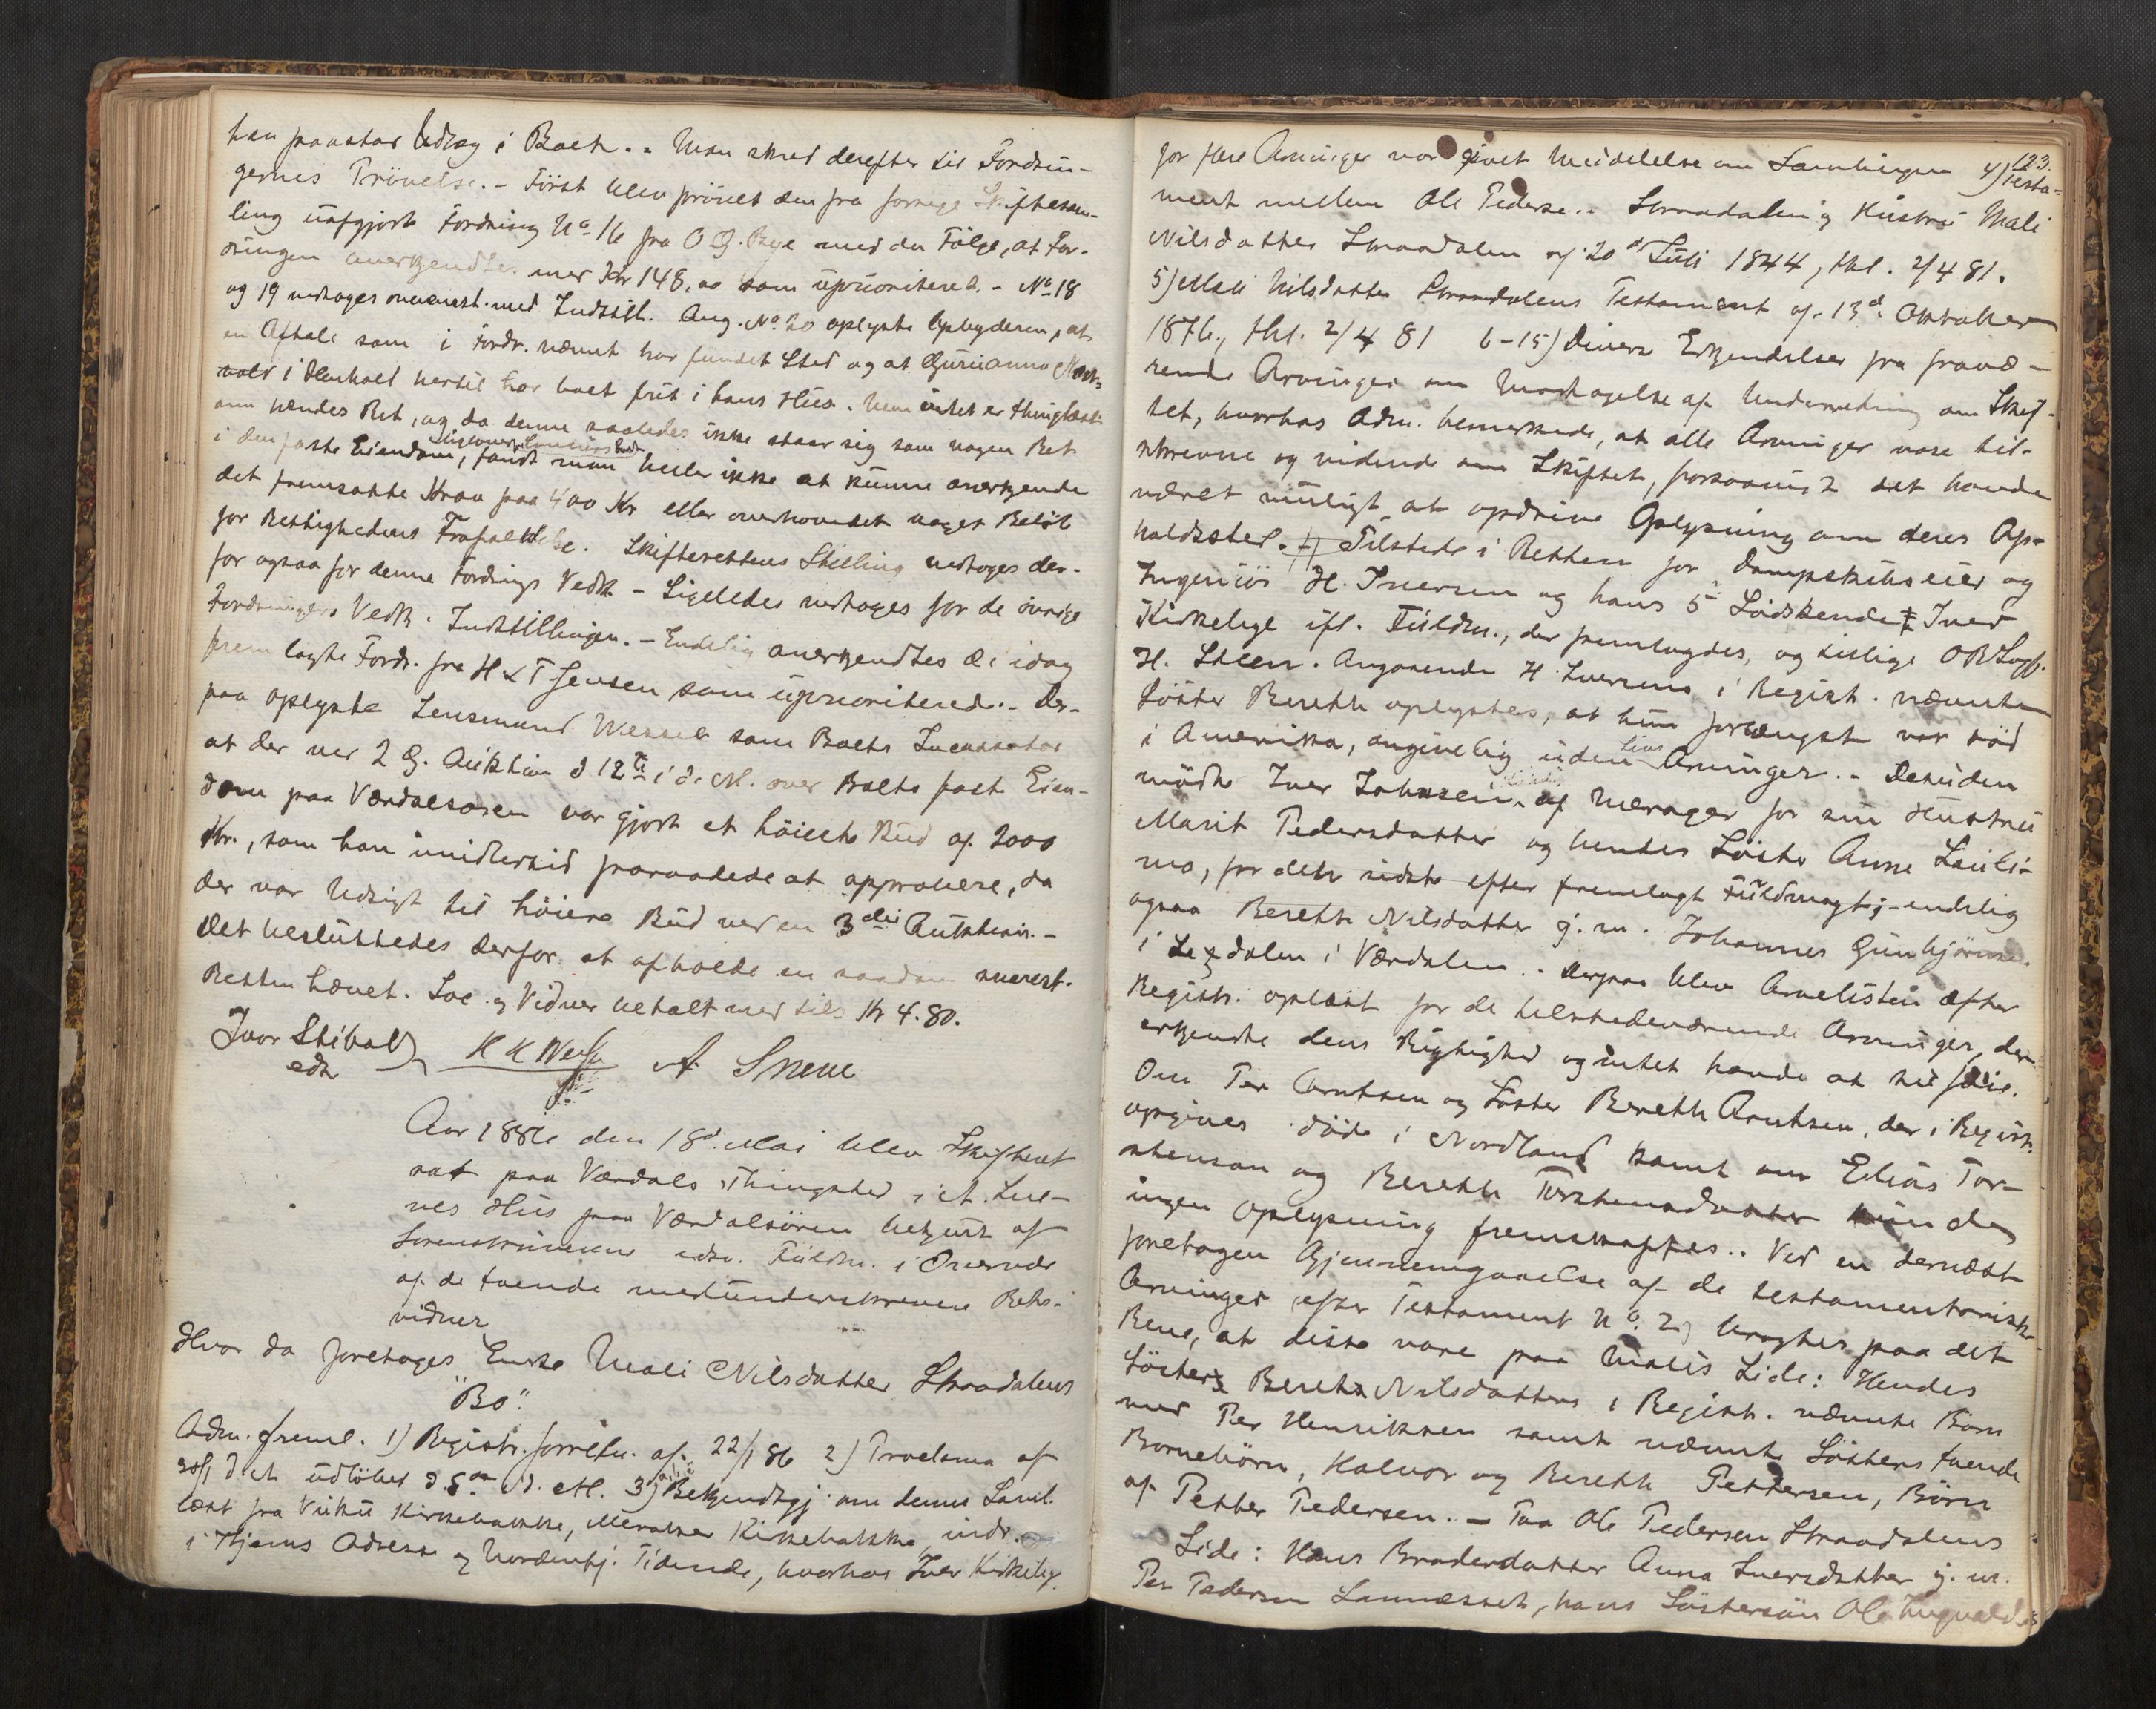 han paastar Udlæg i Boet. - Man skred derefter til Fordrin-
gernes Prövelse. - Först blev prövet den fra forrige Skiftesam-
ling uafgjort Fordring No 16 fra O G. Bye med den Fölge, at For-
dringen anerkjendtes med Kr 148,00 som uprioriteret. - No 18
og 19 vedtoges overenst. med Indstill. Ang. No 20 oplyste Opbyderen, at
en Aftale som i Fordr. nævnt har fundet Sted og at Gurianna
i Henhold hertil har boet frit i hans Hus. Men intet er thinglæst
om hendes Ret, og da denne saaledes ikke staar sig som nogen Ret
i den faste Eiendom, fandt man heller ikke at kunne anerkjende
det fremsatte Krav paa 400 Kr eller overhovedet noget Belöb
for Rettighedens Frafaldelse. Skifterettens Stilling vedtoges der-
for ogsaa for denne Fordrings Vedk. - Ligeledes vedtoges for de övrige
Fordringers Vedk. Indstillingen. - Endelig anerkjendtes de idag
fremlagte Fordr. fra H & T Jensen som uprioriterede. - Der-
paa oplyste Lensmand Wessel som Boets Incassator
at der ved 2 G. Auktion d 12te i d. M. over Boets faste Eien-
dom paa Værdalsören var gjort et höieste Bud af 2000
Kr., som han imidlertid fraraadede at approbere, da
der var Udsigt til höiere Bud ved en 3die Auktion. -
Det besluttedes derfor at afholde en saadan snarest.
Retten hævet. Loc. og Vidner betalt med tils Kr 4.80.
Ivar Stibolt
edr
K K Wessel
A Snene
Aar 1886 den 18d Mai blev Skifteret
sat paa Værdals Thingsted i A. Sne-
nes Hus paa Værdalsören betjent af
Sorenskriveren edsv. Fuldm. i Overvær
af de tvende medunderskrevne Rets-
vidner
Hvor da foretoges Enke Mali Nilsdatter Straadalens
"Bo".
Adm. freml. 1) Registr.forretn. af 22/1 86 2) Proclama af
20/1 d. A. udlöbet d. 5 d. M. 3) Bekjendtgj. om denne Saml.
læst fra Vuku Kirkebakke, Meraker Kirkebakke, indr.
i Stjørns Adresse og Nordenfj. Tidende, hvorhos Iver Kirkelig.
123.
for flere Arvinger var givet Meddelelse om Samlingen 4) Testa-
ment mellem Ole Pedersen Straadalen og Hustru Mali
Nilsdatter Straadalen af 20d Juli 1844, thl. 2/4 81.
5) Mali Nilsdatter Straadalens Testament af 13d Oktober
1876, thl. 2/4 81 6-15) Diverse Erkjendelser fra fravæ-
rende Arvinger om Modtagelse af Underretning om Skif-
tet, hvorhos Adm. bemærkede, at alle Arvinger vare til-
skrevne og vidende om Skiftet, forsaavidt det havde
været muligt at opdrive Oplysning om deres Op-
holdssted. Tilstede i Retten for Dampskibseier og
Ingeniör H. Iversen og hans 5 Södskende Iver
Kirkelige ifl. Fuldm., der fremlagdes, og tillige ORSagf.
H. Steen. Angaaende H. Iversens i Registr. nævnte
Söster Bereth oplystes, at hun forlængst var död
i Amerika, angivelig uden Livs Arvinger. - Desuden
mödte Iver Johnsen af Merager for sin Hustru
Marit Pedersdatter og hendes Söster Anne Lauli-
mo, for den sidste efter fremlagt Fuldmagt; - endelig
ogsaa Bereth Nilsdatter g. m. Johannes Gunbjörnsen
i Lexdalen i Værdalen. - Derpaa blev Arvelisten efter
Registr. oplæst for de tilstedeværende Arvinger, der
erkjendte dens Rigtighed og intet havde at tilföie.
Om Per Arntsen og Söster Bereth Arntsen, der i Registr.
opgives döde i Nordland samt om Elias Tor-
stensen og Bereth Torstensdatter kunde
ingen Oplysning fremskaffes. - Ved en dernæst
foretagen Gjennemgaaelse af de testamentariske
Arvinger efter Testament No. 2) bragtes paa det
Rene, at disse vare paa Malis Side: Hendes
Sösters Bereth Nilsdatters i Registr. nævnte Börn
med Per Henriksen samt nævnte Sösters tvende
Börnebörn, Halvor og Bereth Pettersen, Börn
af Petter Pedersen. - Paa Ole Pedersen Straadalens
Side: Hans Broderdatter Anna Iversdatter g. m.
Per Pedersen Sannæsset, hans Söstersön Ole Ingvald